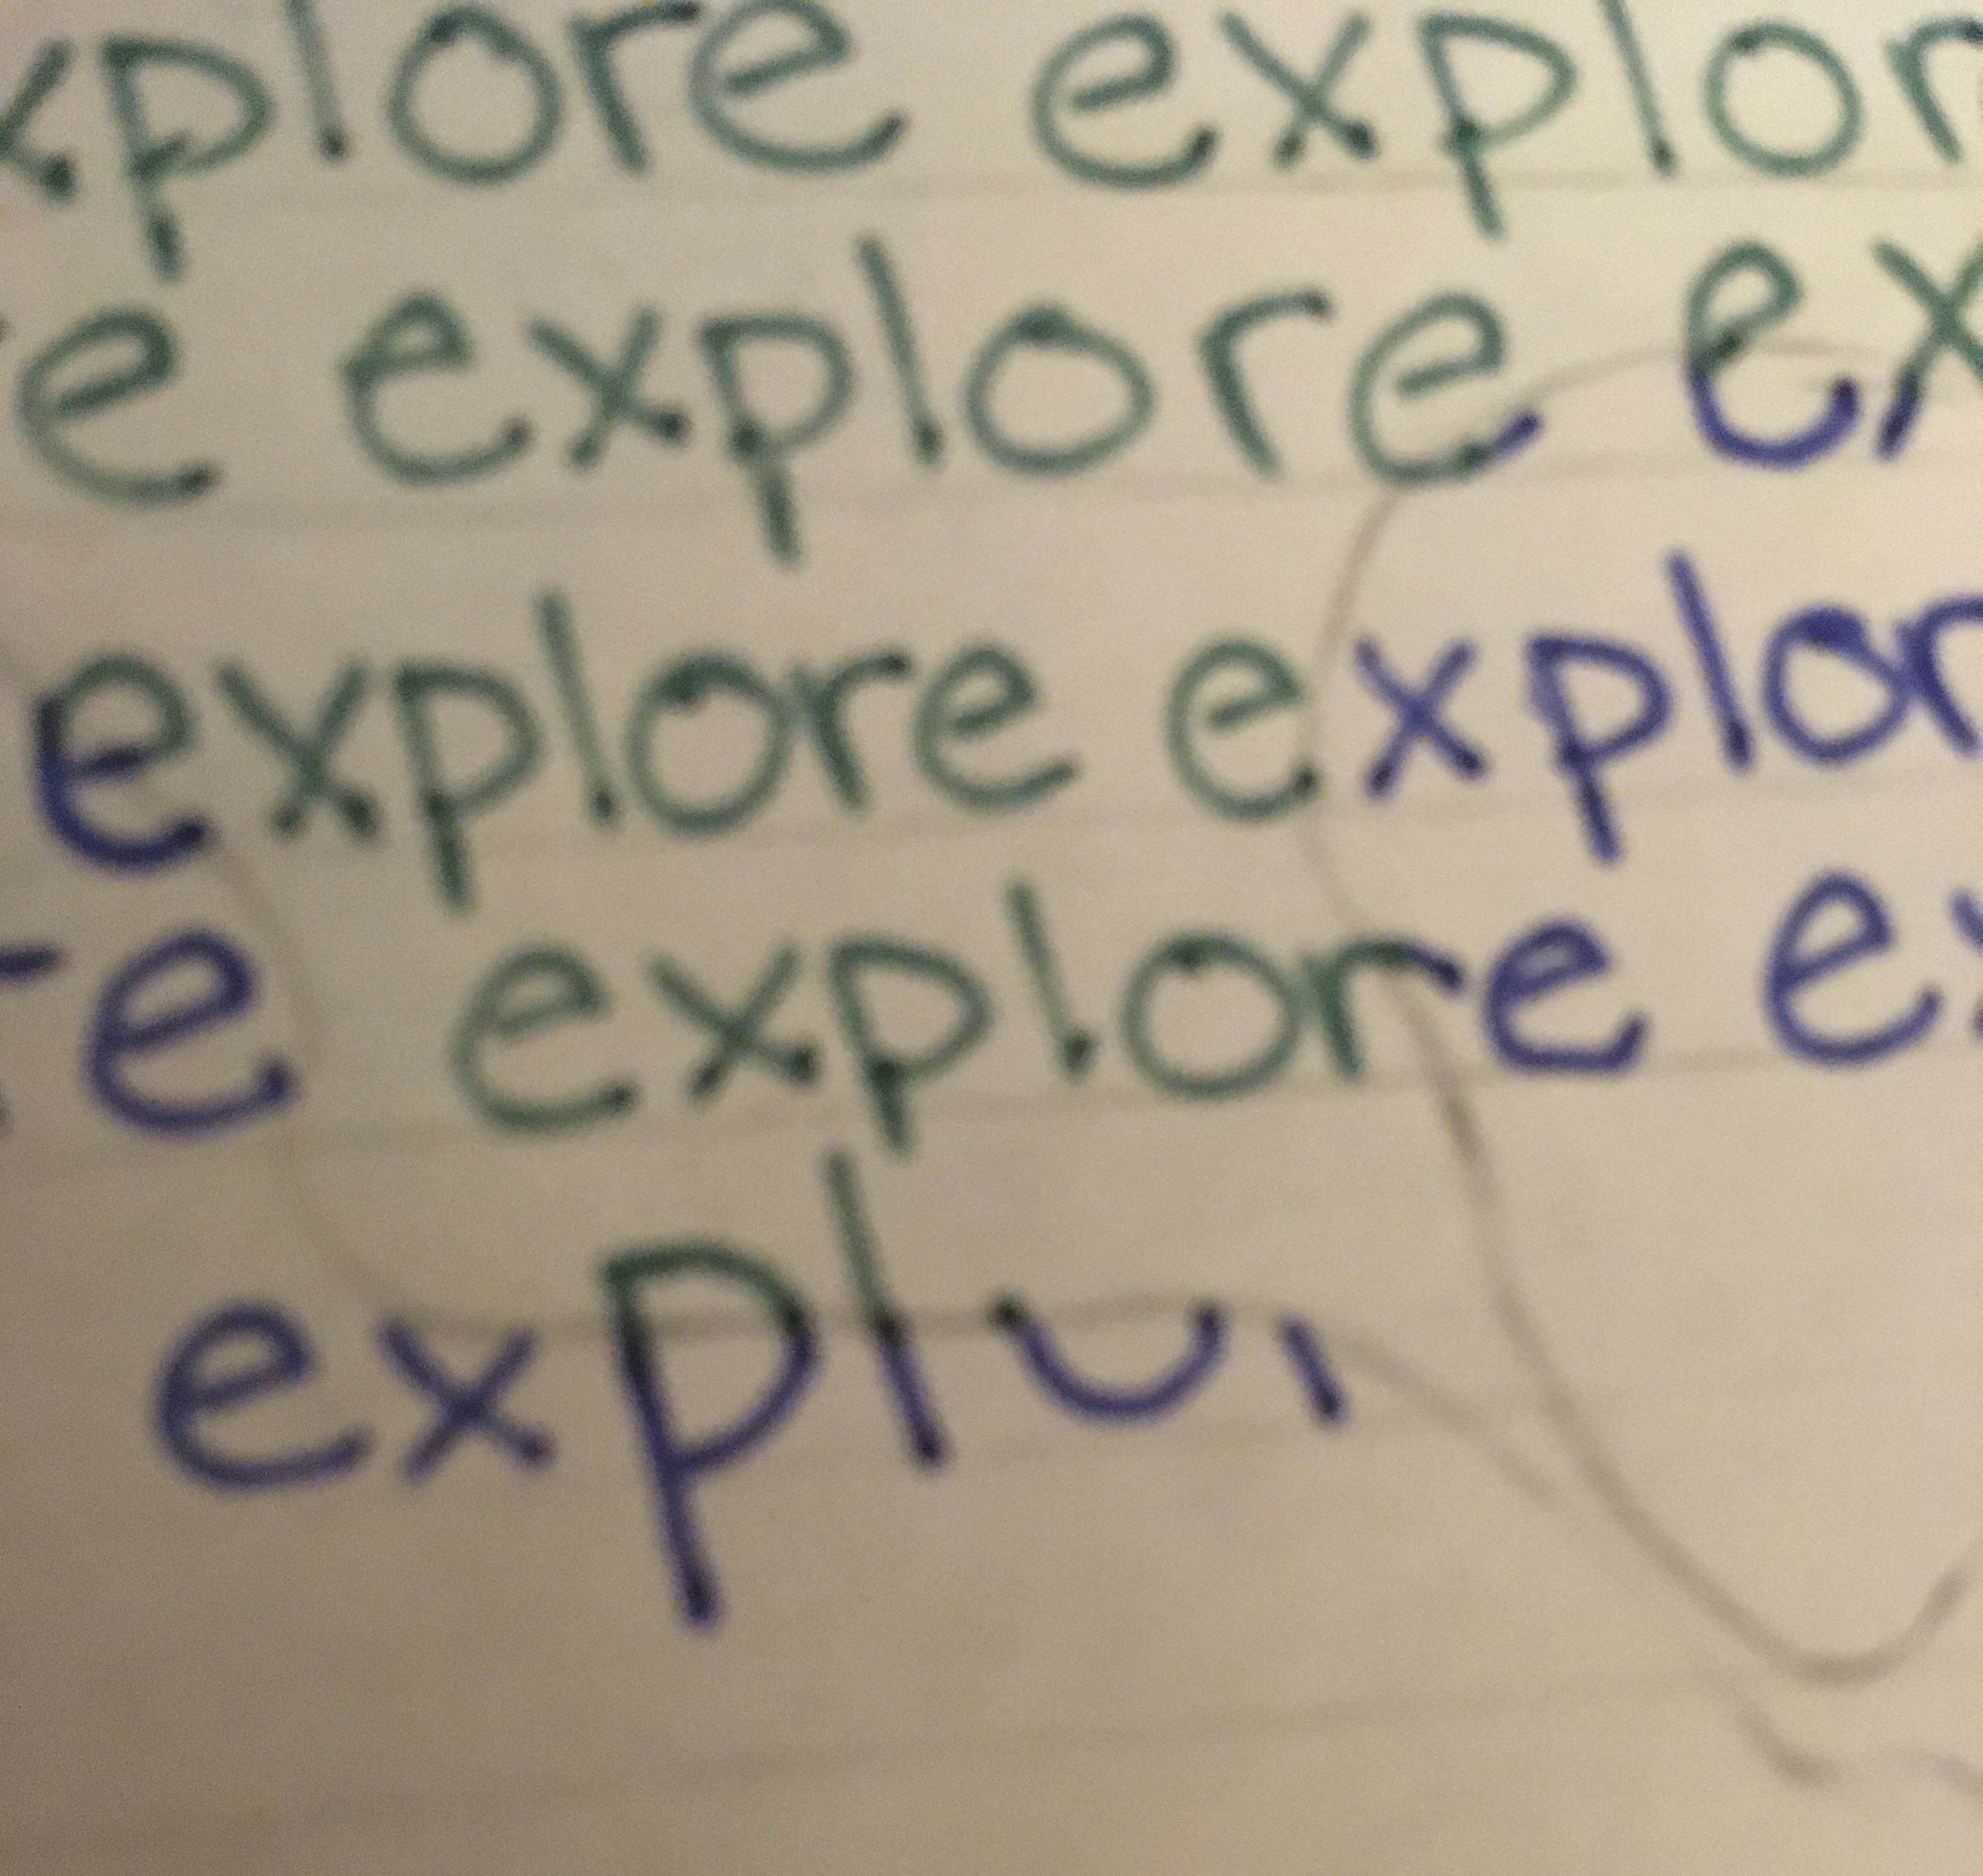 xplore explor
e explore ex
explore explor
re explore ex
expl